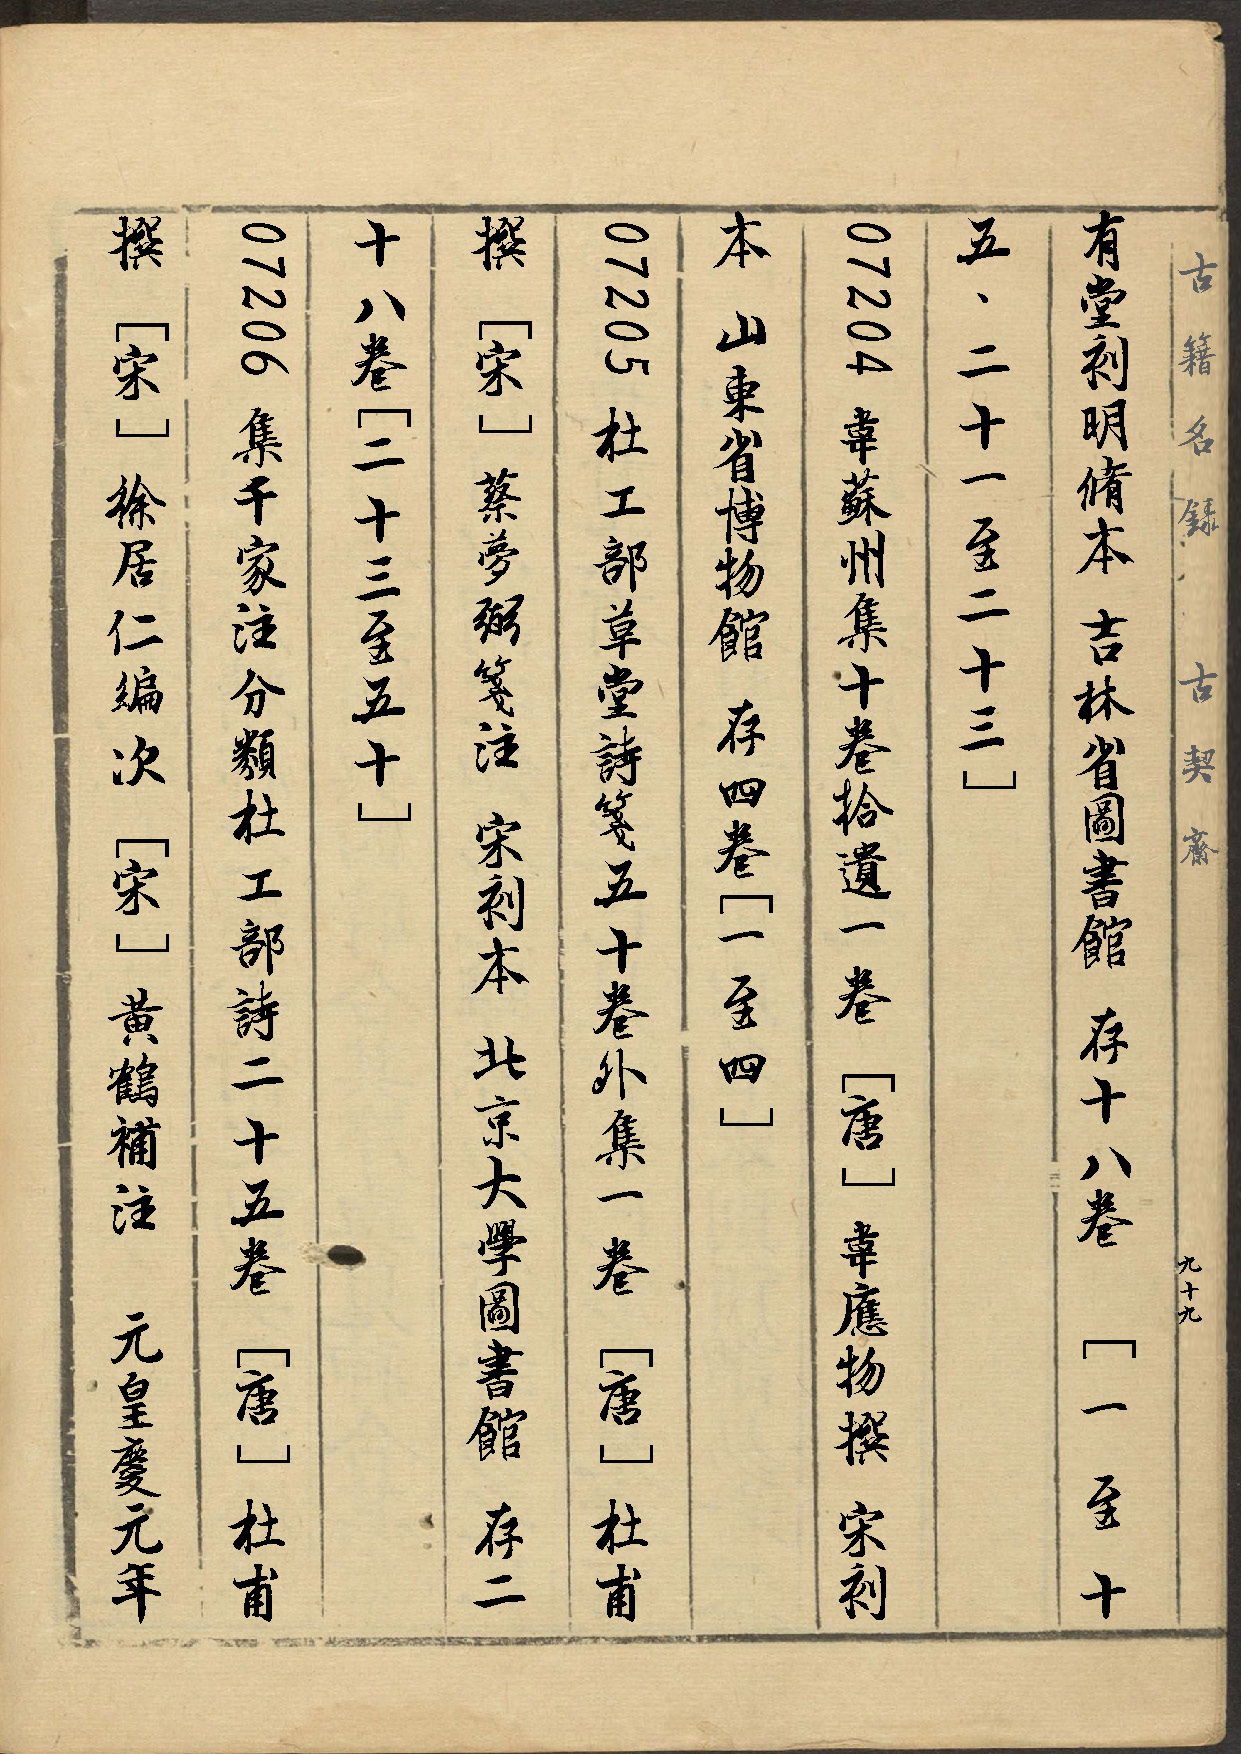 古籍名録 古契齋
九十九
有堂刻明脩本 吉林省圖書館 存十八卷 [一至十
五、二十一至二十三]
07204 韋蘇州集十卷拾遺一卷 [唐] 韋應物撰 宋刻
本 山東省博物館 存四卷[一至四]
07205 杜工部草堂詩箋五十卷外集一卷 [唐] 杜甫
撰 [宋] 蔡夢弼箋注 宋刻本 北京大學圖書館 存二
十八卷[二十三至五十]
07206 集千家注分類杜工部詩二十五卷 [唐] 杜甫
撰 [宋] 徐居仁編次 [宋] 黃鶴補注 元皇慶元年